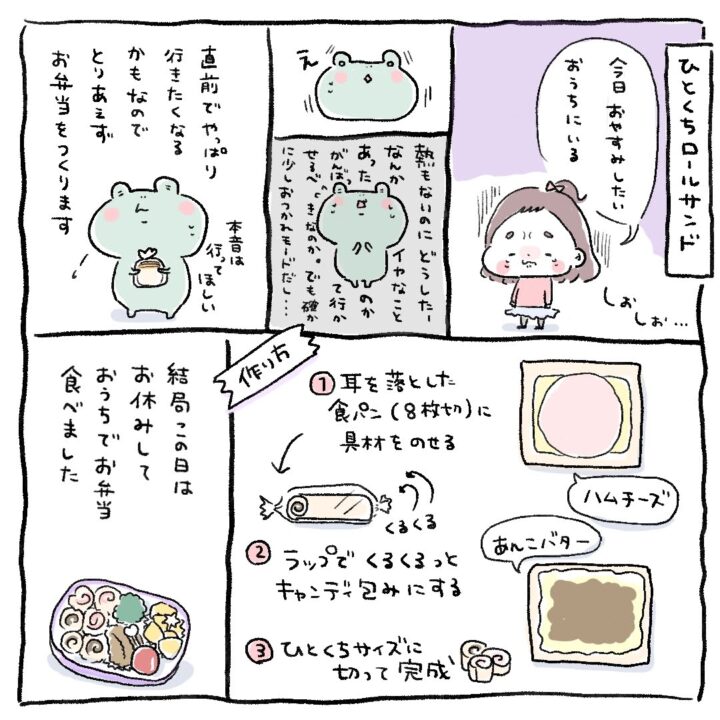 ひとくちロールサンド
今日 おやすみしたい
おうちにいる
しおしお…
え
熱もないのに どうしたー
なんか イヤなこと
あった のか
がんばっ て行か
せるべ きなのか。でも確か
に少しおつかれモードだし…
直前でやっぱり
行きたくなる
かもなので
とりあえず
お弁当をつくります
本音は
行って
ほしい
作り方
1 耳を落とした
食パン(8枚切)に
具材をのせる
ハムチーズ
あんこバター
くるくる
2 ラップで くるくるっと
キャンディ包みにする
3 ひとくちサイズに
切って完成
結局この日は
お休みして
おうちでお弁当
食べました